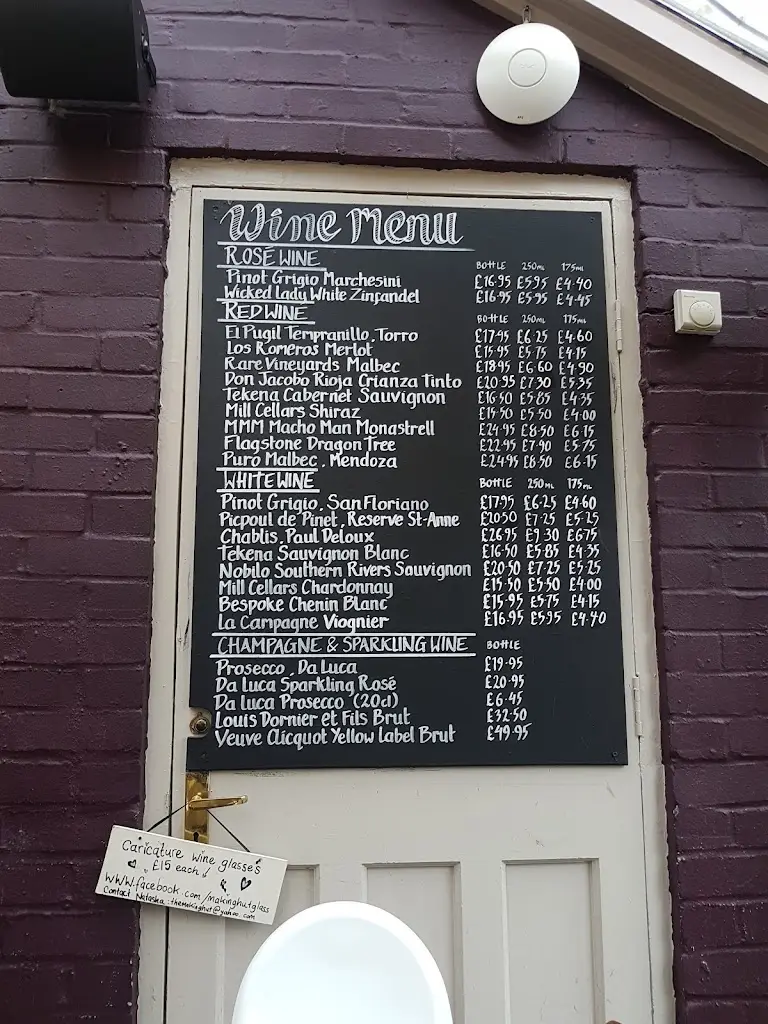 Wine Menu
ROSÉ WINE BOTTLE 250ml 175ml
Pinot Grigio Marchesini £16.95 £5.95 £4.40
Wicked Lady White Zinfandel £16.95 £5.95 £4.45
RED WINE BOTTLE 250ml 175ml
El Pugil Tempranillo, Torro £17.95 £6.25 £4.60
Los Romeros Merlot £15.95 £5.75 £4.15
Rare Vineyards Malbec £18.95 £6.60 £4.90
Don Jacobo Rioja Crianza Tinto £20.95 £7.30 £5.35
Tekena Cabernet Sauvignon £16.50 £5.85 £4.35
Mill Cellars Shiraz £15.50 £5.50 £4.00
MMM Macho Man Monastrell £24.95 £8.50 £6.15
Flagstone Dragon Tree £22.95 £7.90 £5.75
Puro Malbec, Mendoza £24.95 £8.50 £6.15
WHITE WINE BOTTLE 250ml 175ml
Pinot Grigio, San Floriano £17.95 £6.25 £4.60
Picpoul de Pinet, Reserve St-Anne £20.50 £7.25 £5.25
Chablis, Paul Deloux £26.95 £9.30 £6.75
Tekena Sauvignon Blanc £16.50 £5.85 £4.35
Nobilo Southern Rivers Sauvignon £20.50 £7.25 £5.25
Mill Cellars Chardonnay £15.50 £5.50 £4.00
Bespoke Chenin Blanc £15.95 £5.75 £4.15
La Campagne Viognier £16.95 £5.95 £4.40
CHAMPAGNE & SPARKLING WINE BOTTLE
Prosecco, Da Luca £19.95
Da Luca Sparkling Rosé £20.95
Da Luca Prosecco (20cl) £6.45
Louis Dornier et Fils Brut £32.50
Veuve Clicquot Yellow Label Brut £49.95
Caricature wine glasses
£15 each
www.facebook.com/makinghutglass
Contact Natasha: themakinghut@yahoo.com